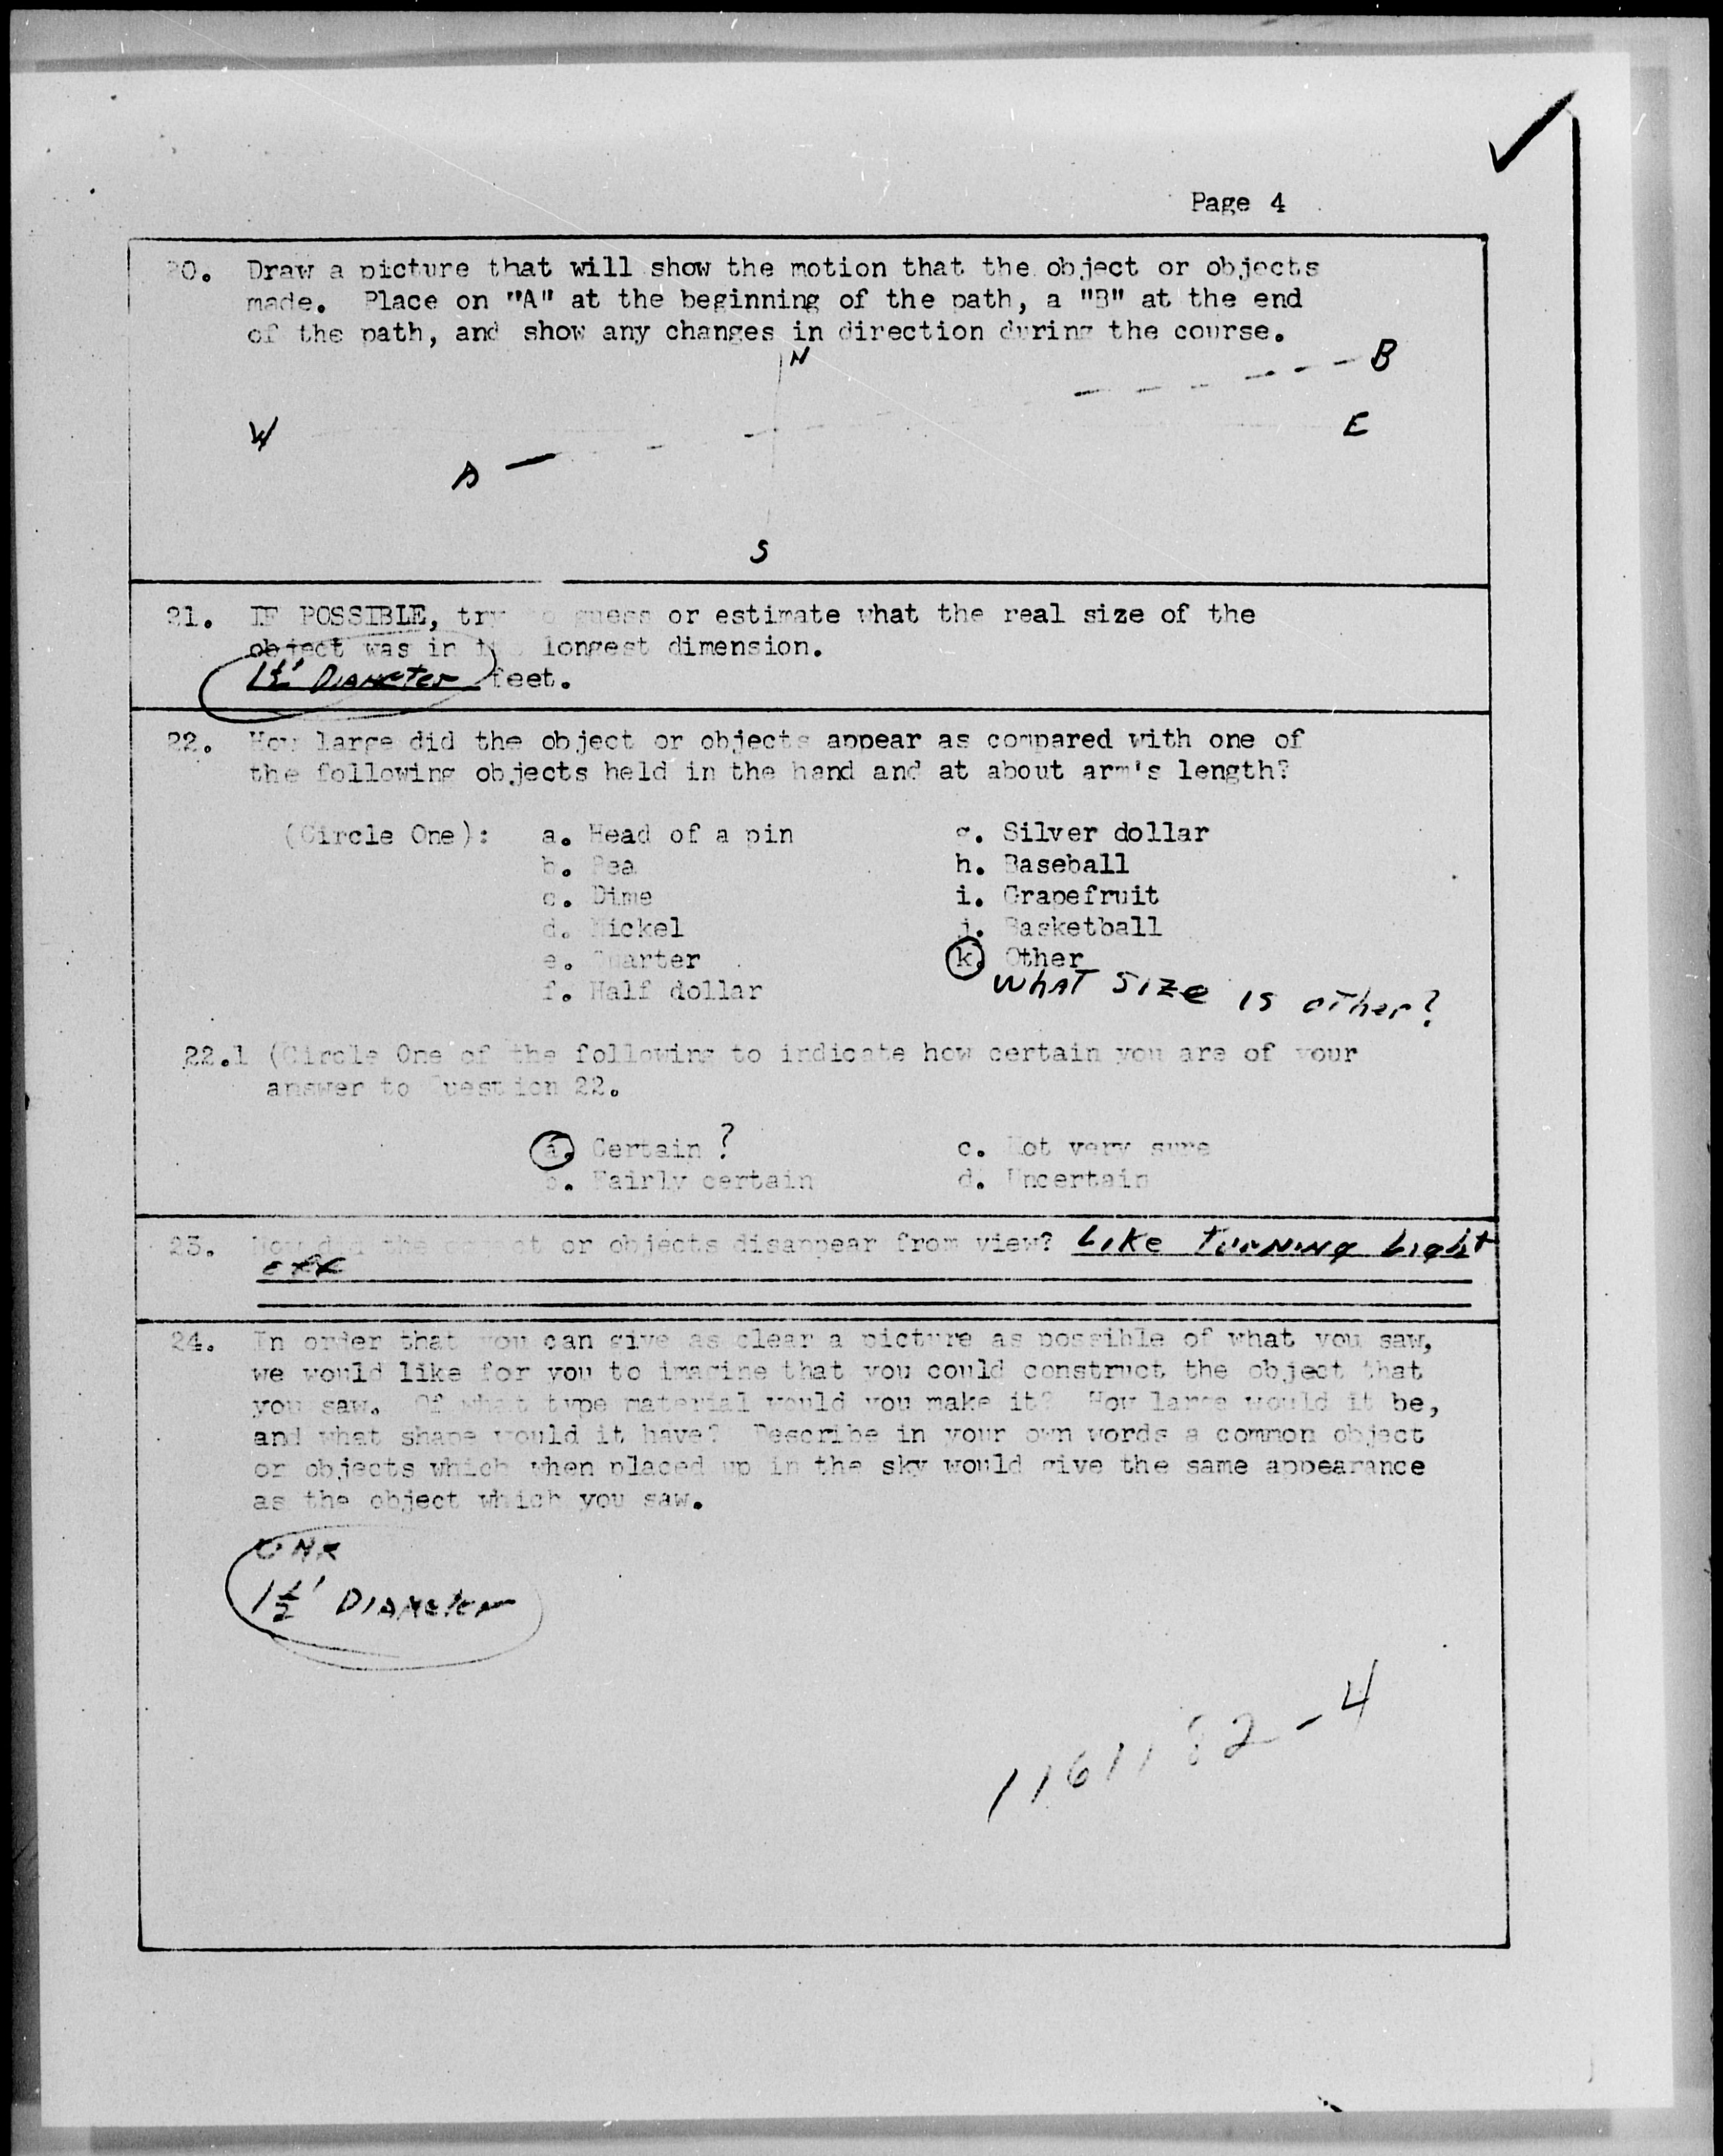 Page 4
20. Draw a picture that will show the motion that the object or objects
made. Place on "A" at the beginning of the path, a "B" at the end
of the path, and show any changes in direction during the course.
N
B
W
E
A
S
21. IF POSSIBLE, try to guess or estimate what the real size of the
object was in its longest dimension.
1½' DIAMETER feet.
22. How large did the object or objects appear as compared with one of
the following objects held in the hand and at about arm's length?
(Circle One): a. Head of a pin g. Silver dollar
b. Pea h. Baseball
c. Dime i. Grapefruit
d. Nickel j. Basketball
e. Quarter k. Other
f. Half dollar WhAT SIZe IS oTher?
22.1 (Circle One of the following to indicate how certain you are of your
answer to Question 22.
a. Certain ? c. Not very sure
b. Fairly certain d. Uncertain
23. How did the object or objects disappear from view? Like TurNiNg Light
off
24. In order that you can give as clear a picture as possible of what you saw,
we would like for you to imagine that you could construct the object that
you saw. Of what type material would you make it? How large would it be,
and what shape would it have? Describe in your own words a common object
or objects which when placed up in the sky would give the same appearance
as the object which you saw.
1½' DIAMeter
1161182-4